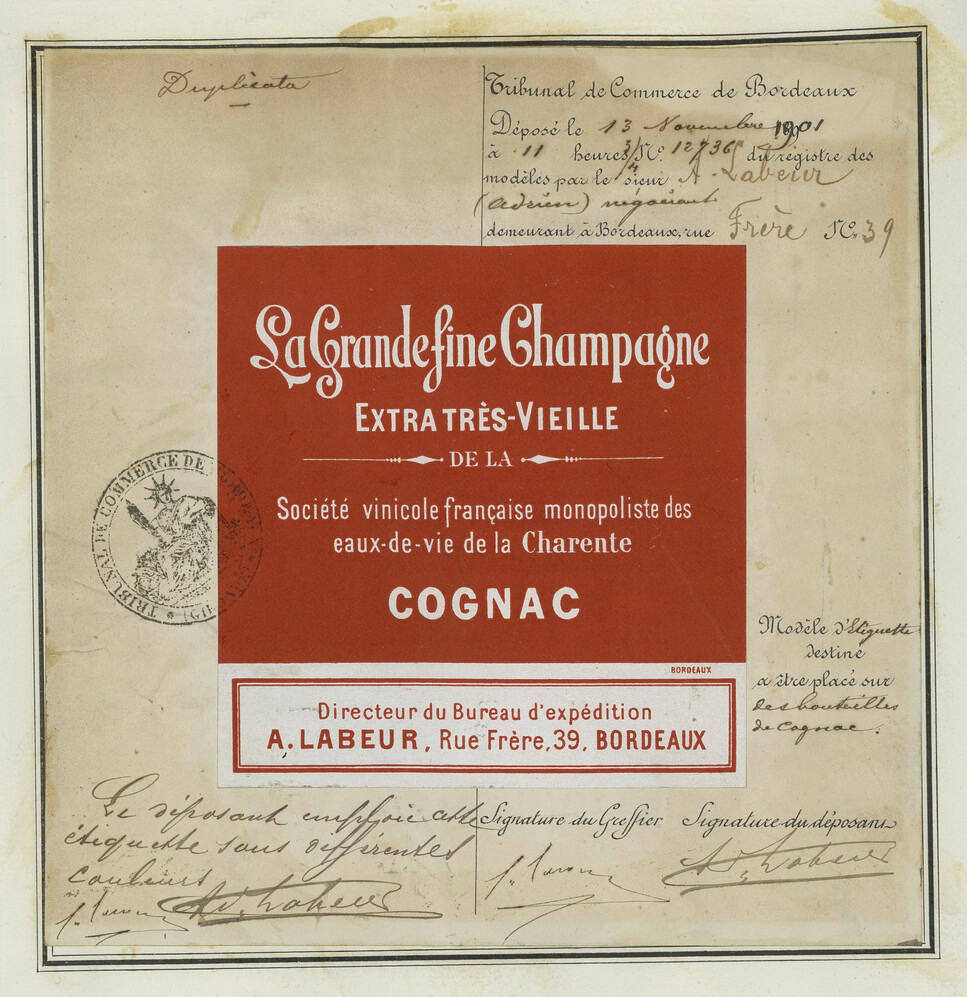 Duplicata
Tribunal de Commerce de Bordeaux
Déposé le 13 Novembre 1901
à 11 heures 3/4 N° 12736 du registre des
modèles par le sieur A. Labeur
(Adrien) négociant
demeurant à Bordeaux, rue Frère N° 39
La Grande fine Champagne
EXTRA TRÈS-VIEILLE
DE LA
Société vinicole française monopoliste des
eaux-de-vie de la Charente
COGNAC
BORDEAUX
Directeur du Bureau d'expédition
A. LABEUR, Rue Frère, 39, BORDEAUX
TRIBUNAL DE COMMERCE DE
Modèle d'Etiquette
destiné
a être placé sur
des bouteilles
de Cognac.
Le déposant emploie cette
étiquette sous différentes
couleurs
Signature du Greffier Signature du déposant